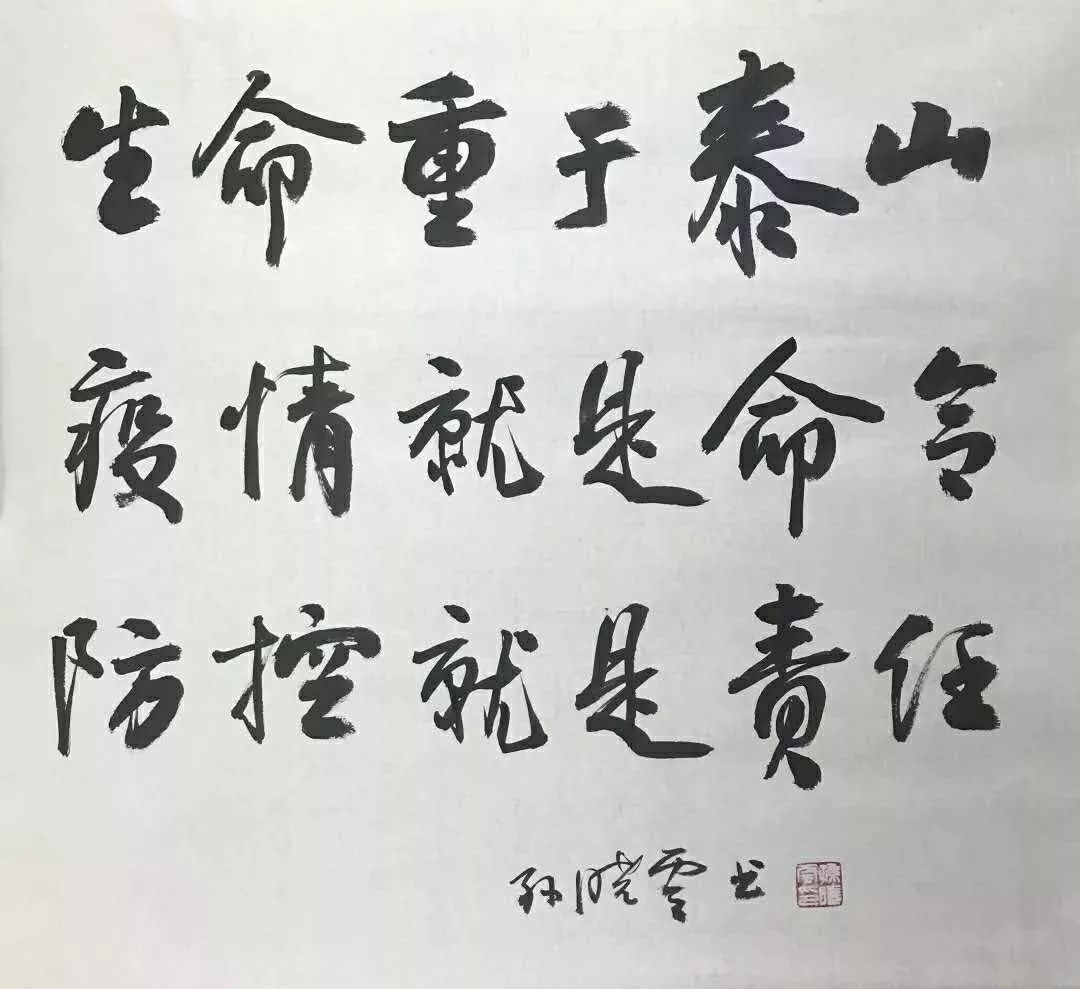 生命重于泰山
疫情就是命令
防控就是责任
孙晓云书